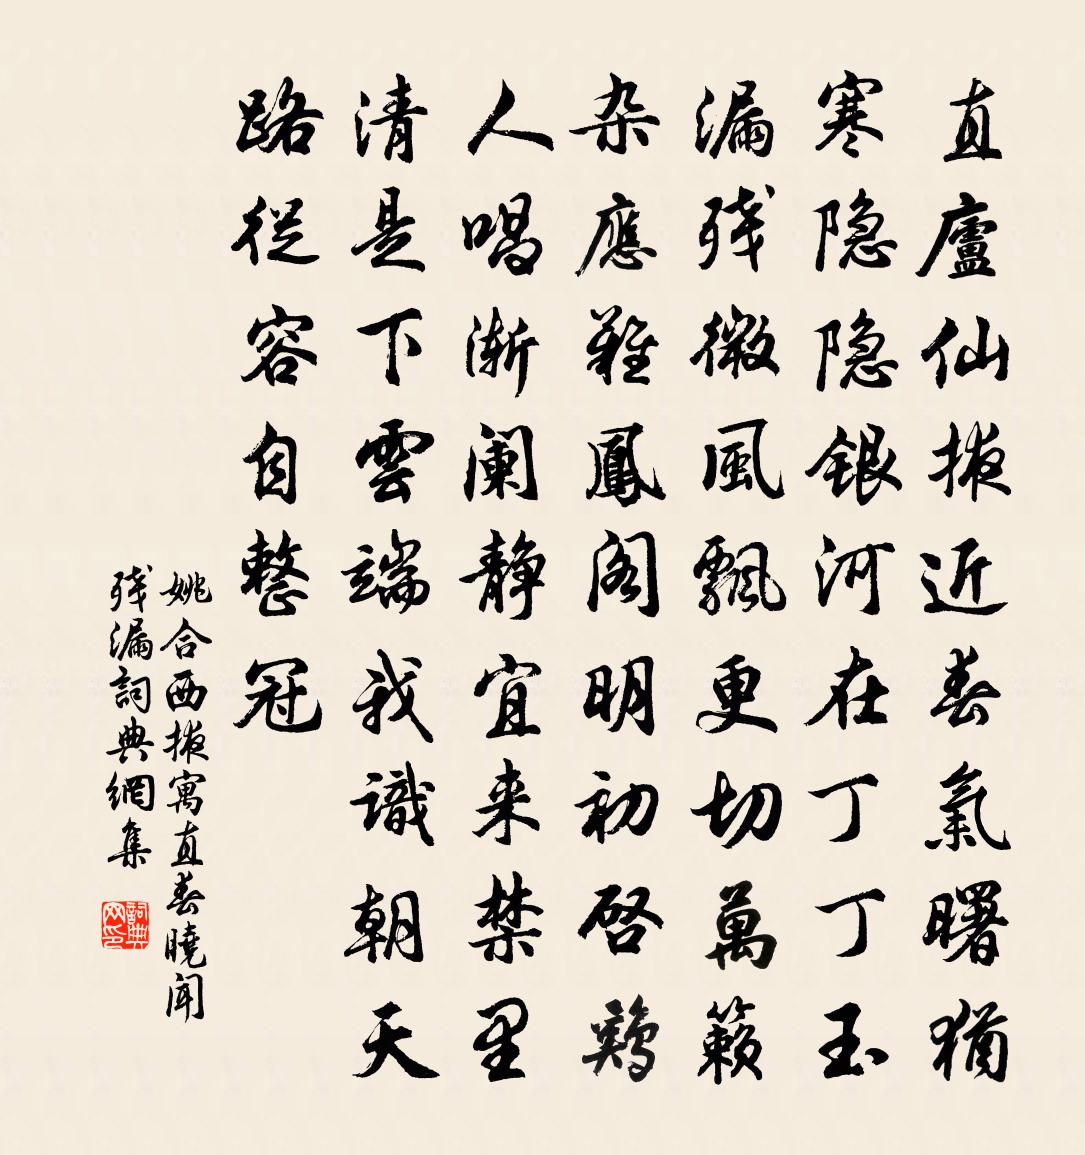 直廬仙掖近春氣曙猶
寒隐隐銀河在丁丁玉
漏残微風飄更切萬籟
杂應難鳳阁明初啓鶏
人唱漸阑静宜来禁里
清是下雲端我識朝天
路從容自整冠
姚合西掖寓直春曉聞
残漏詞典網集
詞典网印